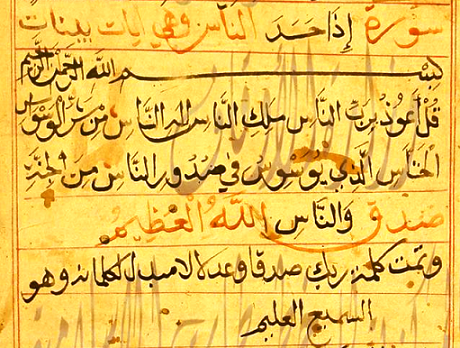 سورة إذا حد الناس وهي آيات بينات
بسم الله الرحمن الرحيم
قُلْ أَعُوذُ بِرَبِّ النَّاسِ مَلِكِ النَّاسِ إله النَّاسِ مِنْ شَرِّ الْوَسْوَاسِ
الْخَنَّاسِ الَّذِي يُوَسْوِسُ فِي صُدُورِ النَّاسِ مِنَ الْجِنَّةِ
صَدَقَ وَالنَّاسِ اللَّهُ الْعَظِيمُ
وتمت كلمة ربك صدقا وعدلا لا مبدل لكلماته وهو
السميع العليم